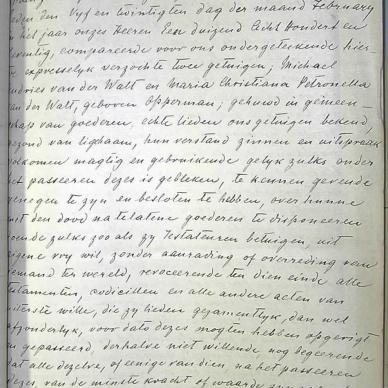 eden den Vyf en twintigsten dag der maand February
n het jaar onzes Heeren Een duizend Acht Honderd en
eventig, compareerde voor ons ondergeteekende hier-
te expresselyk verzochte twee getuigen; Michael
andries van der Walt en Maria Christiana Petronella
van der Walt, geboren Opperman; gehuwd in gemeen-
schap van goederen, echte lieden ons getuigen bekend,
gezond van lighaam, hun verstand zinnen en uitspraak
olkomen magtig en gebruikende gelyk zulks onder
et passeeren dezes is gebleken, te kennen gevende
enegen te zyn en besloten te hebben, over hunne
met den dood na te latene goederen te disponeeren
oende zulks zoo als zy Testateuren betuigen, uit
eigene vry wil, zonder aanrading of overreding van
iemand ter wereld, revoceerende ten dien einde alle
estamenten, codicillen en alle andere acten van
uiterste wille, die zy lieden gezamentlyk, dan wel
afzonderlyk, voor dato dezes mogten hebben opgerigt
en gepasseerd, derhalve niet willende nog begeerende
dat alle dezelve, of eenige van dien, na het passeeren
dezes, van de minste kracht of waarde